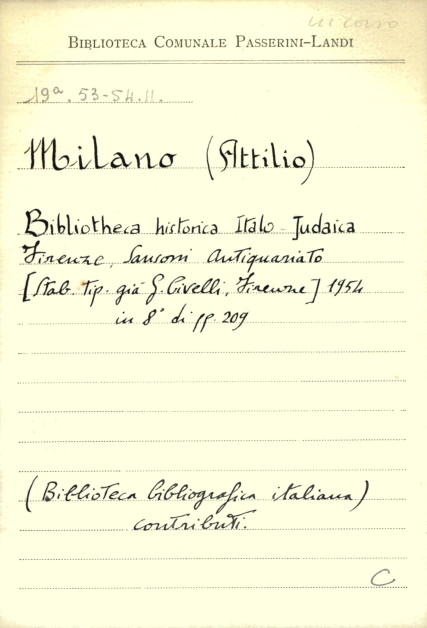 in corso
BIBLIOTECA COMUNALE PASSERINI-LANDI
19a. 53-54. II.
Milano (Attilio)
Bibliotheca historica Italo-Judaica
Firenze, Sansoni Antiquariato
[Stab. tip. già G. Civelli, Firenze] 1954
in 8° di pp. 209
(Biblioteca bibliografica italiana)
contributi.
C